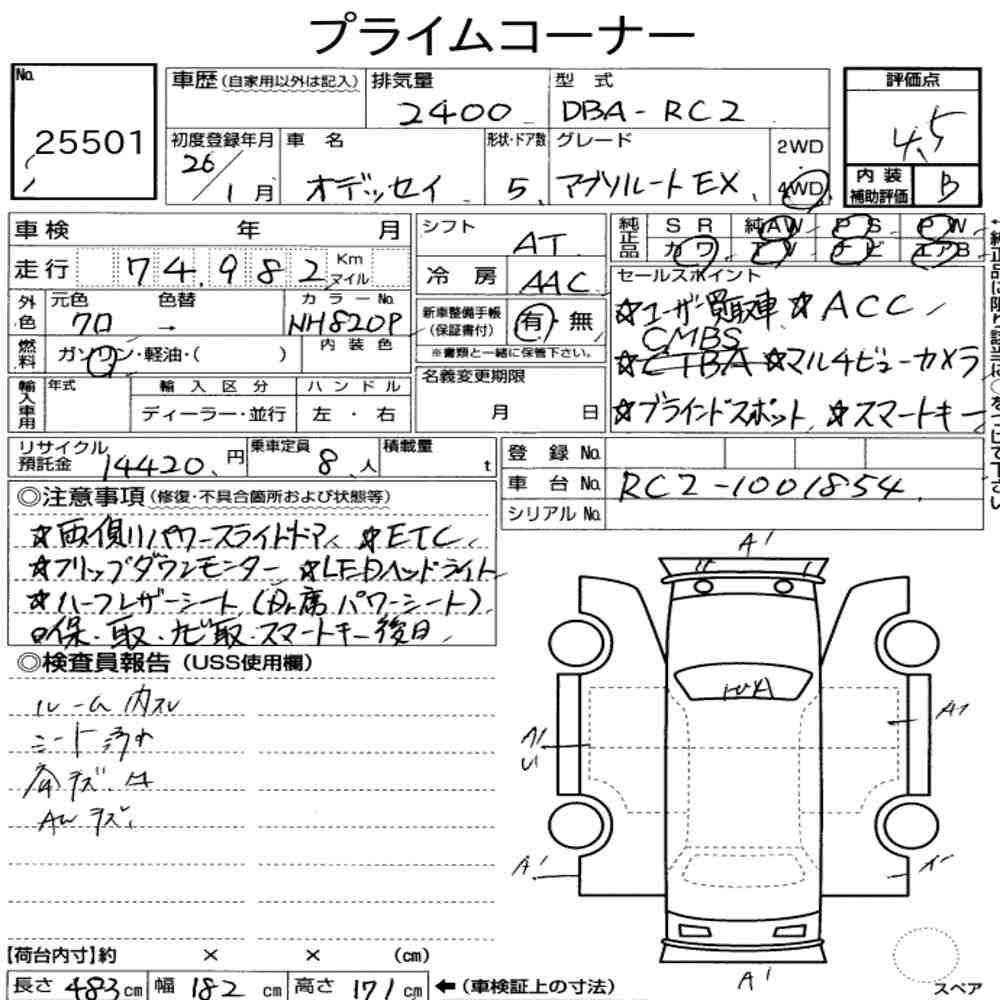 プライムコーナー
No. 25501
車歴 (自家用以外は記入) 排気量 2400 型式 DBA-RC2
評価点 4.5
初度登録年月 26/1月 車名 オデッセイ 形状・ドア数 5 グレード アブソルートEX 2WD 4WD
内装補助評価 B
車検 年 月
走行 74,982 Km マイル
外色 元色 クロ → 色替 カラーNo. NH820P
内装色
燃料 ガソリン・軽油・( )
輸入車用 年式 輸入区分 ディーラー・並行 ハンドル 左・右
シフト AT
冷房 AAC
新車整備手帳 (保証書付) 有・無
※書類と一緒に保管下さい。
名義変更期限 月 日
純正品 SR 純AW PS PW
カワ TV ナビ エアB
←純正品に限り該当に○をつけて下さい
セールスポイント
☆ユーザー買取車 ☆ACC
CMBS
☆CTBA ☆マルチビューカメラ
☆ブラインドスポット ☆スマートキー
リサイクル預託金 14420 円 乗車定員 8人 積載量 t
登録No.
車台No. RC2-1001854
シリアルNo.
◎注意事項 (修復・不具合箇所および状態等)
☆両側パワースライドドア ☆ETC
☆フリップダウンモニター ☆LEDヘッドライト
☆ハーフレザーシート (Dr席パワーシート)
保・取・ナビ取・スマートキー後日
◎検査員報告 (USS使用欄)
ルーム内スレ
シート
キズ
AWキズ
A'
A'
A1
A'
A'
【荷台内寸】約 × × (cm)
長さ 483cm 幅 182cm 高さ 171cm ←(車検証上の寸法)
スペア